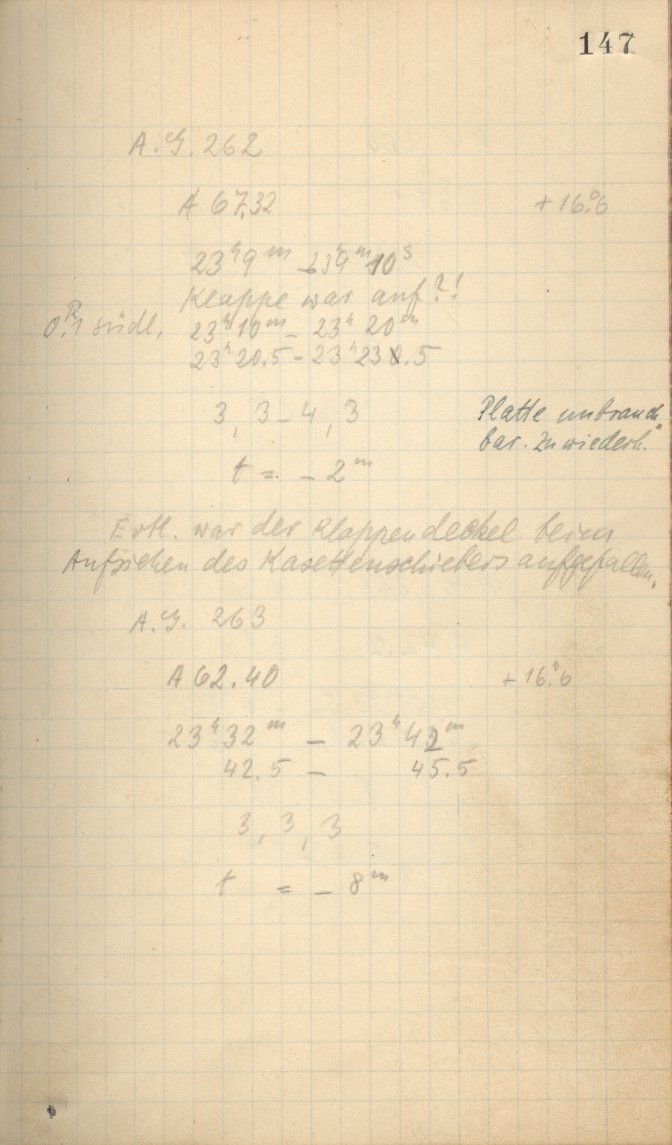 147
A. G. 262
A 67.32 +16.°6
23ʰ9ᵐ - 23ʰ9ᵐ10ˢ
Klappe war auf?!
0.ᴿ1 südl. 23ʰ10ᵐ - 23ʰ20ᵐ
23ʰ20.5 - 23ʰ23.5
3, 3-4, 3
Platte unbrauch
bar. Zu wiederh."
t = - 2ᵐ
Evtl. war der Klappendeckel beim
Aufziehen des Kasettenschiebers aufgefallen.
A. G. 263
A 62.40 +16.°6
23ʰ32ᵐ - 23ʰ42ᵐ
42.5 - 45.5
3, 3, 3
t = - 8ᵐ